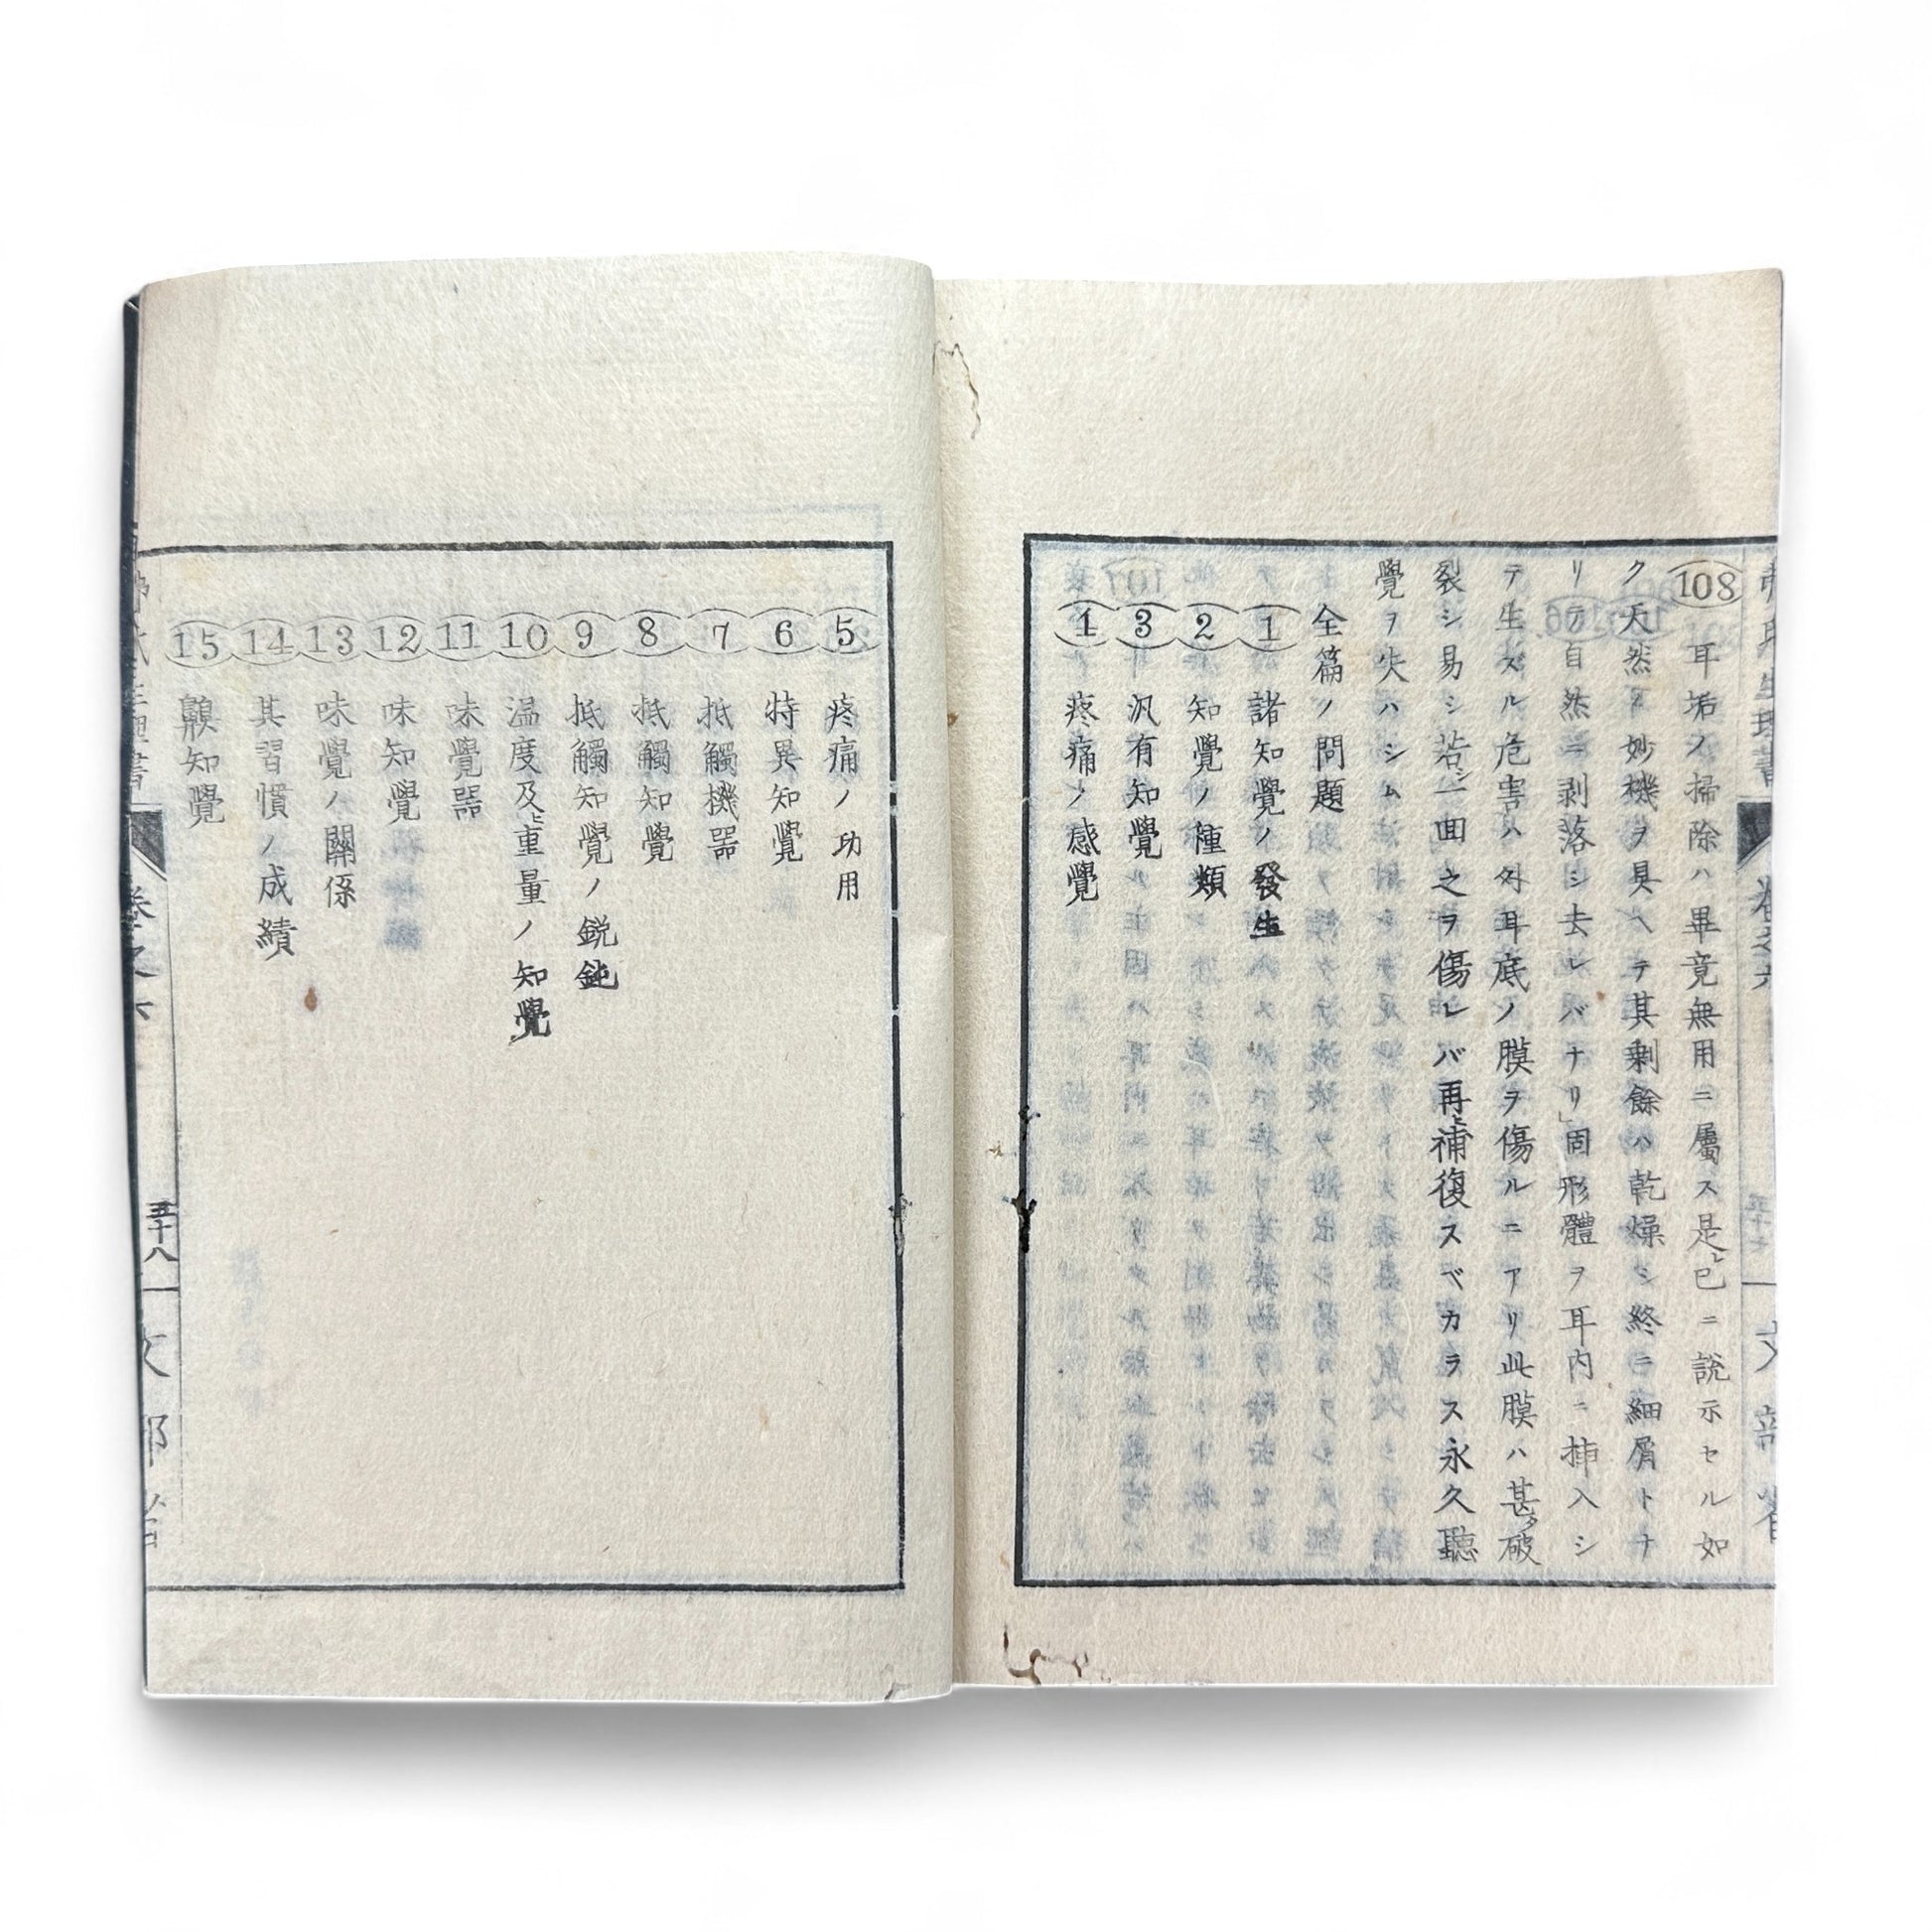 108 耳垢ノ掃除ハ畢竟無用ニ屬ス是レ已ニ說示セル如
ク天然ノ妙機ヲ具ヘテ其剩餘ハ乾燥シ終ニ細屑トナ
リテ自然ニ剥落シ去レバナリ」固形體ヲ耳内ニ挿入シ
テ生ズル危害ハ外耳底ノ膜ヲ傷ルニアリ此膜ハ甚ダ破
裂シ易シ若シ一回之ヲ傷レバ再ヒ補復スベカラス永久聽
覺ヲ失ハシム
全篇ノ問題
1 諸知覺ノ發生
2 知覺ノ種類
3 汎有知覺
4 疼痛ノ感覺
文部省
5 疼痛ノ功用
6 特異知覺
7 抵觸機器
8 抵觸知覺
9 抵觸知覺ノ鋭鈍
10 温度及ヒ重量ノ知覺
11 味覺器
12 味知覺
13 味覺ノ關係
14 其習慣ノ成績
15 齅知覺
卷之六
五十八
文部省